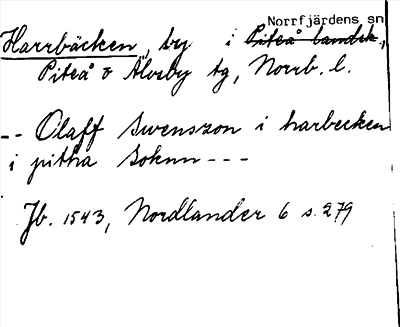 Norrfjärdens sn
Harrbäcken, by i Piteå landsk,
Piteå o Älvsby tg, Norrb. l.
-- Olaff Swensson i harbecken
i pitha Soknn ---
Jb. 1543, Nordlander 6 s. 279